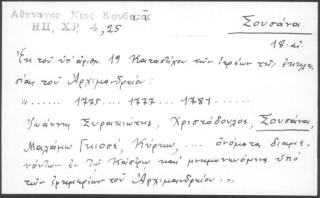 Αθηναγορ Νεος Κουβαρᾶς
ΗΠ, ΧΡ. 4, 25
Σουσάνα
18. αἰ.
Ἐκ τοῦ ὑπ' ἀριθμ. 19 Κατασίχου τῶν ἱερέων τῆς ἐκκλη-
σίας τοῦ Ἀρχιμανδρείου:
"...... 1775 ---- 1777 ---- 1781 ------
Ἰωάννης Συρακιώτης, Χριστόδουλος, Σουσάνα,
Μαλάμω Γκιοσέ, Κύρκω, ... ὀνόματα διαμε-
νόντων ἐν τῷ Κάστρῳ καὶ μνημονευόμενα ὑπὸ
τῶν ἐφημερίων τοῦ Ἀρχιμανδρείου.",